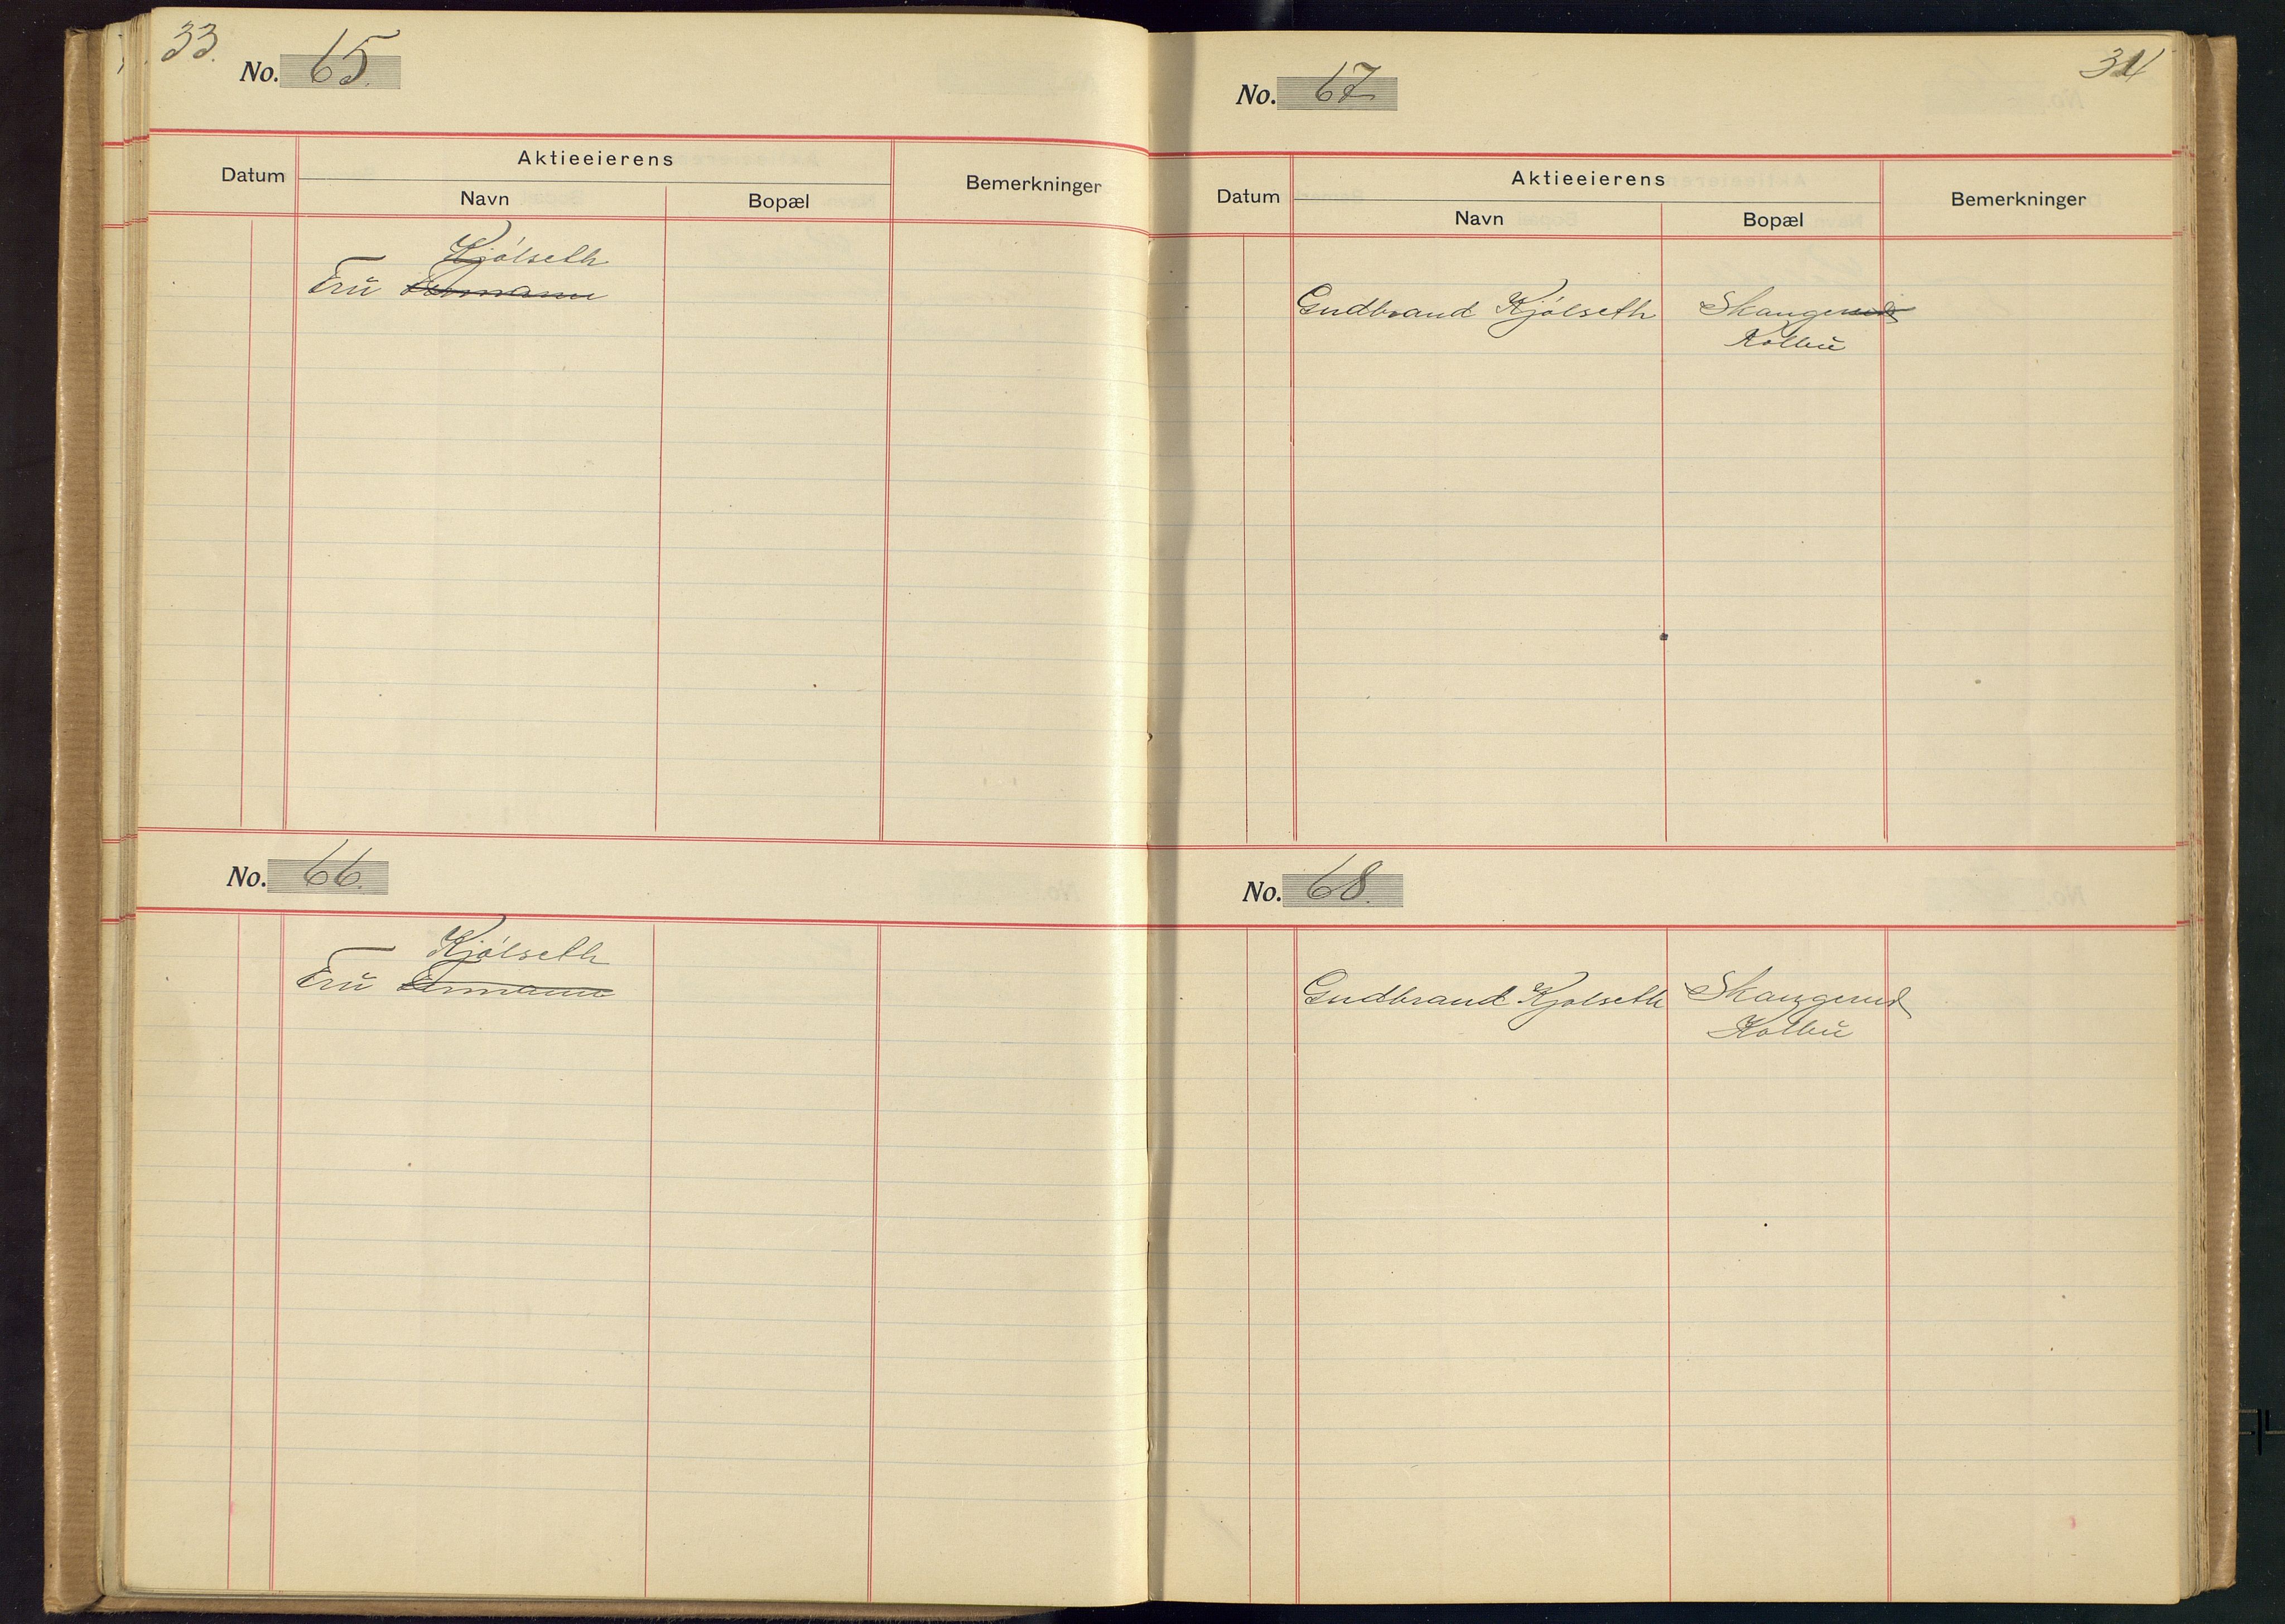 33.
No. 65.
Datum
Aktieeierens
Navn
Bopæl
Bemerkninger
Kjølseth
Fru
No. 66.
Kjølseth
Fru
34
No. 67
Datum
Aktieeierens
Navn
Bopæl
Bemerkninger
Gudbrand Kjølseth
Kolbu
No. 68.
Gudbrand Kjølseth Skangerud
Kolbu